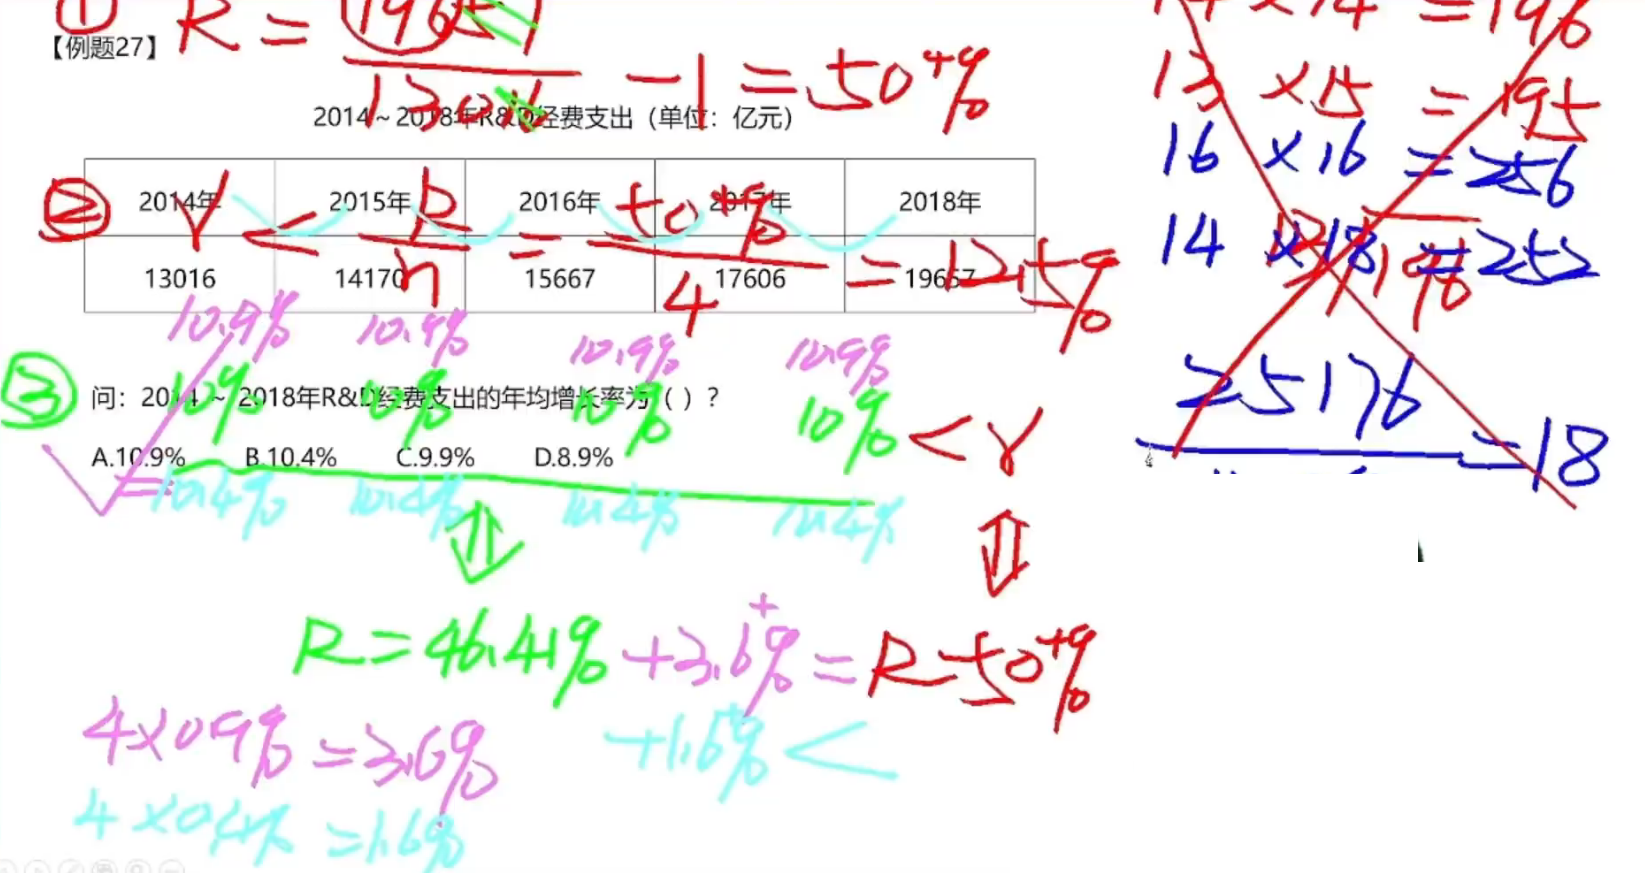 ① R = 19657 / 13016 - 1 = 50⁺%
【例题27】
2014～2018年R&D经费支出（单位：亿元）
2014年 2015年 2016年 2017年 2018年
13016 14170 15667 17606 19657
② r < R/n = 50⁺%/4 = 12.5%
10.9% 10.9% 10.9% 10.9%
③ 10% 10% 10% 10% < r
问：2014～2018年R&D经费支出的年均增长率为（ ）？
A.10.9% B.10.4% C.9.9% D.8.9%
10.4% 10.4% 10.4% 10.4%
R = 46.41% +3.6⁺% = R=50⁺%
4×0.9% = 3.6%
+1.6⁺% <
4×0.4% = 1.6%
14 × 14 = 196
13 × 15 = 195
16 × 16 = 256
14 × 18 = 252
196
25176
= 18